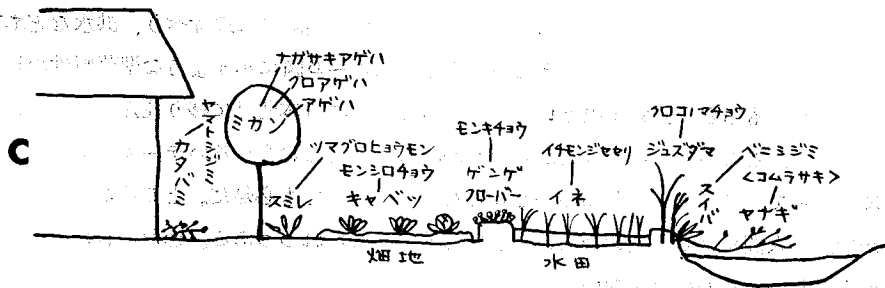 C
ヤマトシジミ
カタバミ
ナガサキアゲハ
クロアゲハ
アゲハ
ミカン
ツマグロヒョウモン
スミレ
モンシロチョウ
キャベツ
モンキチョウ
ゲンゲ
クローバー
イチモンジセセリ
イネ
クロコノマチョウ
ジュズダマ
ベニシジミ
スイバ
<コムラサキ>
ヤナギ
畑地
水田